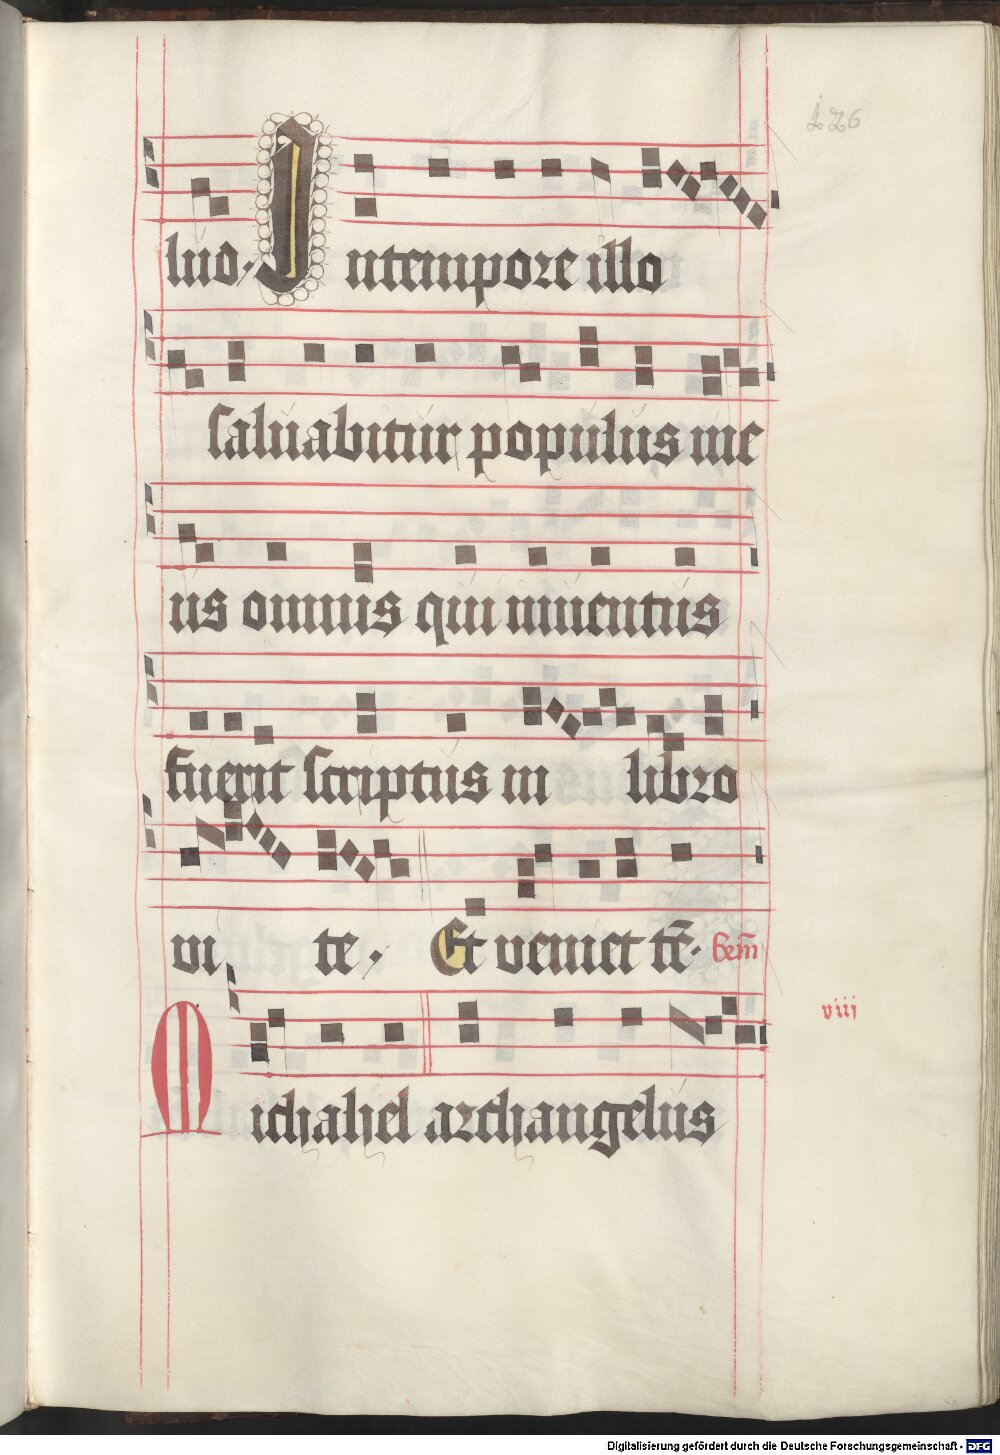 126
lud· Intempore illo
saluabitur populus me
us omnis qui inuentus
fuerit scriptus in libro
vi te · Et veniet tē· bem̄
viii
Michahel archangelus
Digitalisierung gefördert durch die Deutsche Forschungsgemeinschaft - DFG